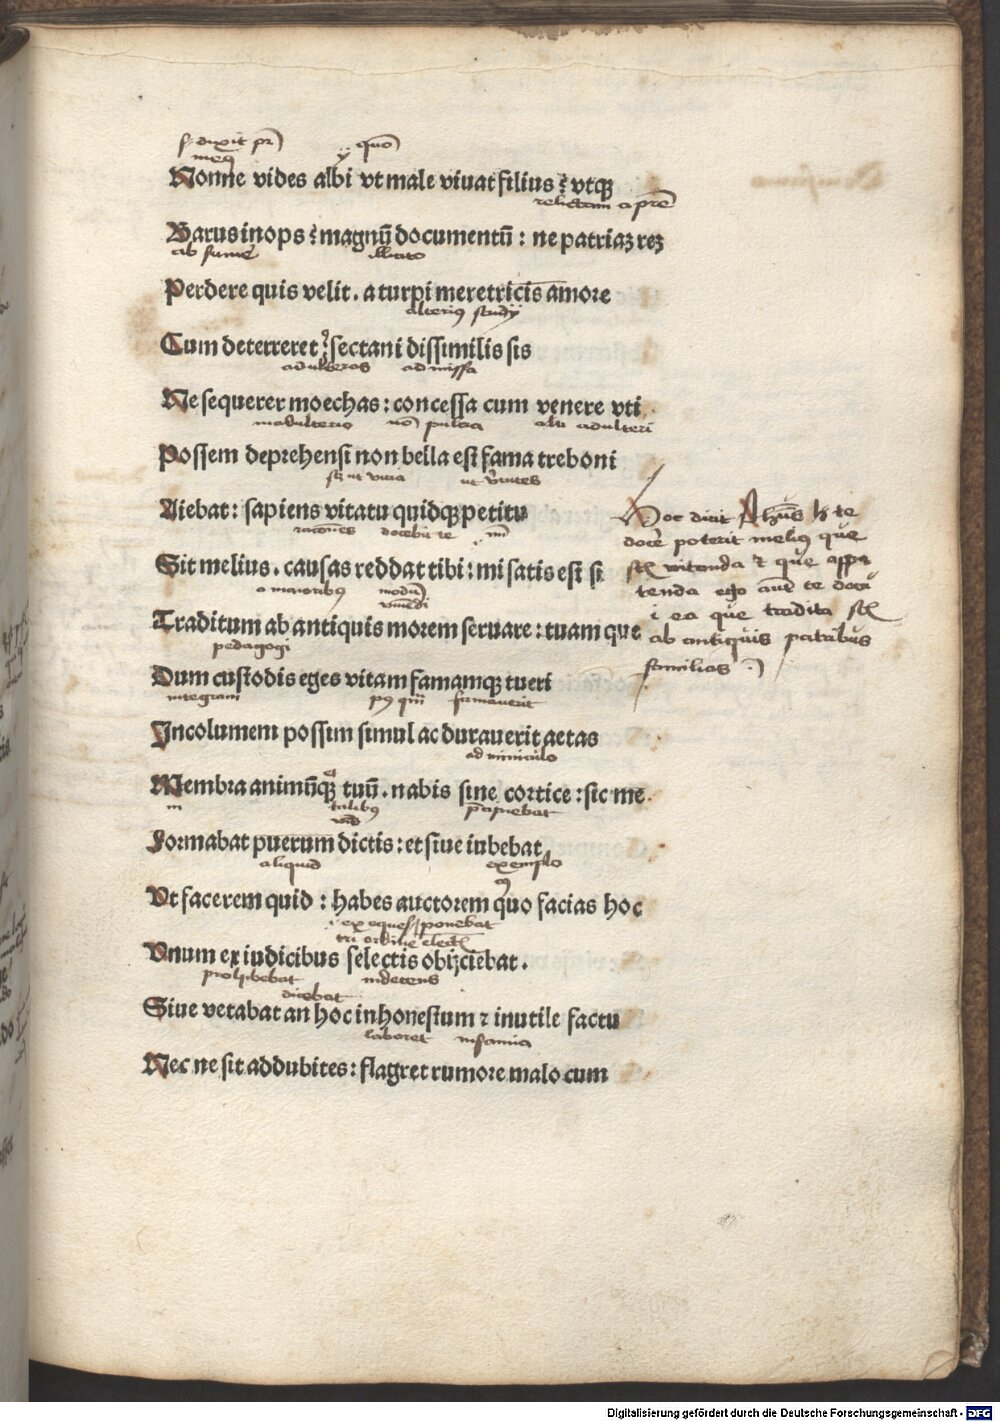 s. dixit pr̄
meꝰ
quō
Nonne vides albi vt male viuat filius: vtqꝫ
relictam a pre
Barus inops: magnū documentū: ne patriaꝫ reꝫ
illicito
Perdere quis velit. a turpi meretricis amore
alterius studij
Cum deterreret: sectani dissimilis sis
adulteras admissa
Ne sequerer moechas: concessa cum venere vti
in adulterio nō pulcra adulteri
Possem deprehensi non bella est fama treboni
Aiebat: sapiens vitatu quidqꝫ petitu
rationes docebit te
Sit melius. causas reddat tibi: mi satis est si
a maioribꝰ modū
viuēdi
Traditum ab antiquis morem seruare: tuam que
pedagogi
Dum custodis eges vitam famamqꝫ tueri
integram firmauerit
Incolumem possim simul ac durauerit aetas
adminiculo
Membra animūqꝫ tuū. nabis sine cortice: sic me
in talibꝰ
Formabat puerum dictis: et siue iubebat
aliquid exemplo
Vt facerem quid: habes auctorem quo facias hoc
ponebat
Vnum ex iudicibus selectis obijciebat.
prohibebat indecens
dicebat
Siue vetabat an hoc inhonestum ⁊ inutile factu
laboret infamia
Nec ne sit addubites: flagret rumore malo cum
Hoc dicit h te
docē poterit meliꝰ que
vitenda ⁊ que appe
tenda ego te
i ea que tradita
ab antiquis patribus
familias
Digitalisierung gefördert durch die Deutsche Forschungsgemeinschaft - DFG